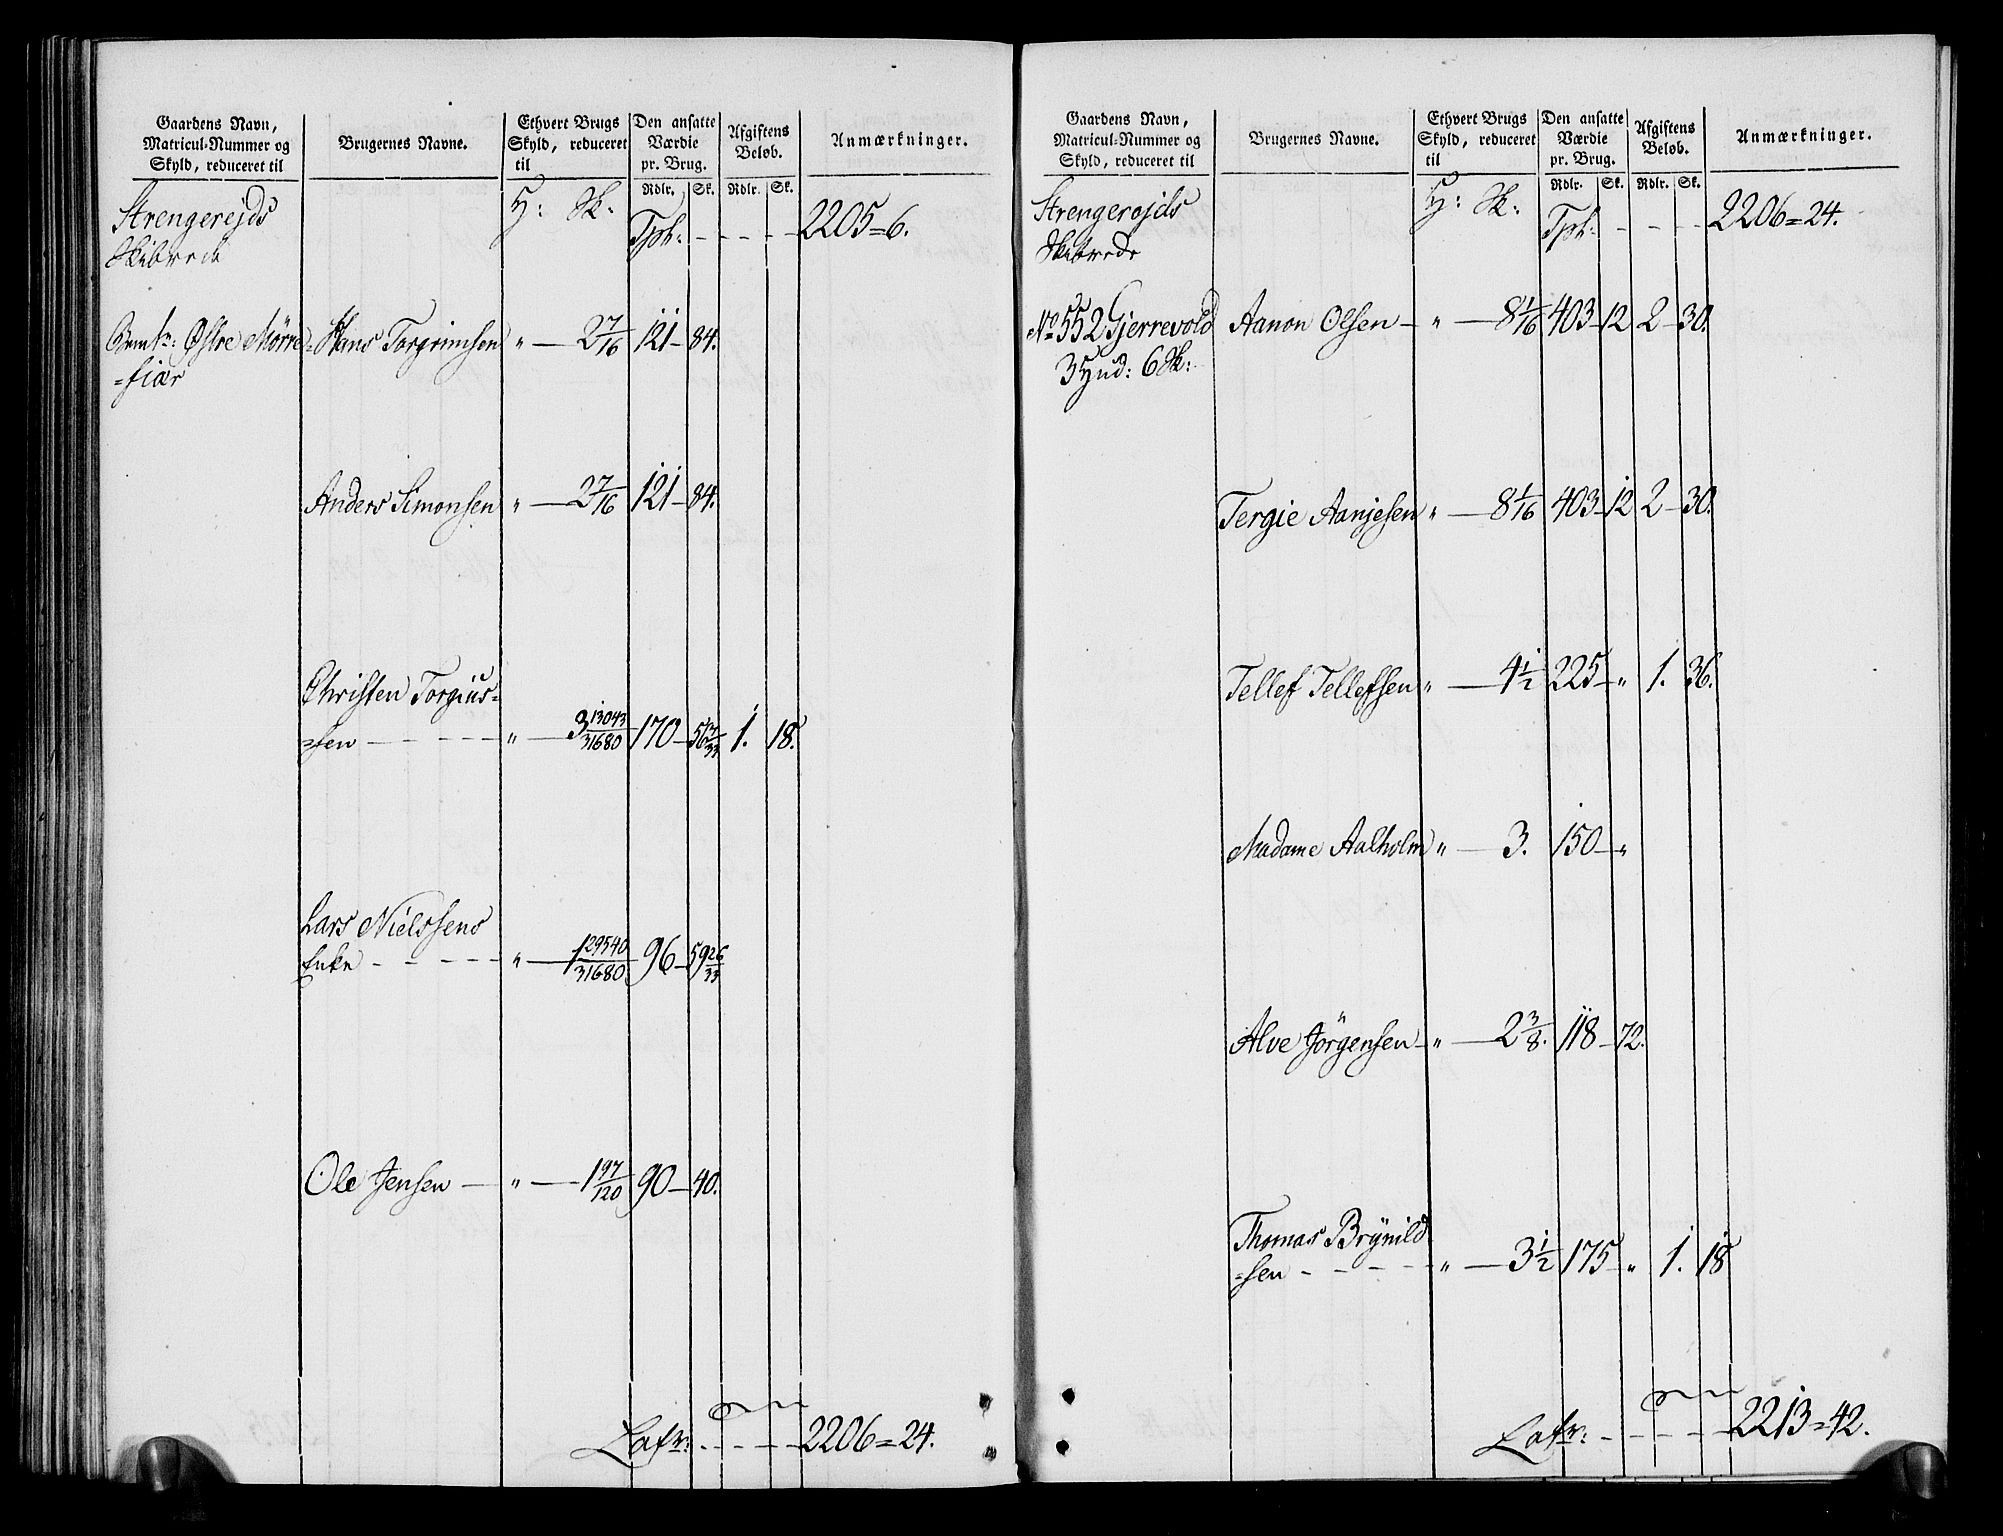 Gaardens Navn,
Matricul-Nummer og
Skyld, reduceret til
Brugernes Navne.
Ethvert Brugs
Skyld, reduceret
til
Den ansatte
Værdie
pr. Brug.
Rdlr. Sk.
Afgiftens
Beløb.
Rdlr. Sk.
Anmærkninger.
Strengerejds
Skibrede
H: Sk:
Tpt: - - - - 2205 = 6.
Østre Mørre Hans Torgrimsen " — 2 7/16 121 — 84.
=fiær
Anders Simonsen " — 2 7/16 121 — 84.
Christen Torgius=
=sen — — — " — 3 13043/31680 170 — 56 7/33 1. 18.
Lars Nielssens
Enke - - - - " — 1 29540/31680 96 — 59 26/33
Ole Jensen — " — 1 97/120 90 — 40.
Latr: - - - - 2206 = 24.
Gaardens Navn,
Matricul-Nummer og
Skyld, reduceret til
Brugernes Navne.
Ethvert Brugs
Skyld, reduceret
til
Den ansatte
Værdie
pr. Brug.
Rdlr. Sk.
Afgiftens
Beløb.
Rdlr. Sk.
Anmærkninger.
Strengerøjds
Skibrede
H: Sk:
Tpt: - - - - 2206 = 24.
No 552 Gjerrevold Aanon Olsen — " — 8 1/16 403 — 12 2 — 30.
3 Hud: 6 Sk:
Tergie Aanjesen " — 8 1/16 403 — 12 2 — 30.
Tellef Tellefsen " — 4 1/2 225 — " 1. 36.
Madame Aalholm " — 3. 150 — "
Alve Jörgensen — " — 2 3/8. 118 — 72.
Thomas Brÿnild
=sen - - - - " — 3 1/2 175 — " 1. 18
Latr: - - - - 2213 = 42.